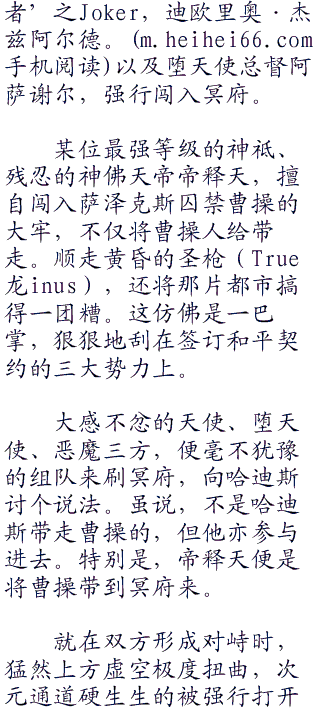 者’之Joker，迪欧里奥·杰
兹阿尔德。(m.heihei66.com
手机阅读)以及堕天使总督阿
萨谢尔，强行闯入冥府。
某位最强等级的神祇、
残忍的神佛天帝帝释天，擅
自闯入萨泽克斯囚禁曹操的
大牢，不仅将曹操人给带
走。顺走黄昏的圣枪（True
龙inus），还将那片都市搞
得一团糟。这仿佛是一巴
掌，狠狠地刮在签订和平契
约的三大势力上。
大感不忿的天使、堕天
使、恶魔三方，便毫不犹豫
的组队来刷冥府，向哈迪斯
讨个说法。虽说，不是哈迪
斯带走曹操的，但他亦参与
进去。特别是，帝释天便是
将曹操带到冥府来。
就在双方形成对峙时，
猛然上方虚空极度扭曲，次
元通道硬生生的被强行打开